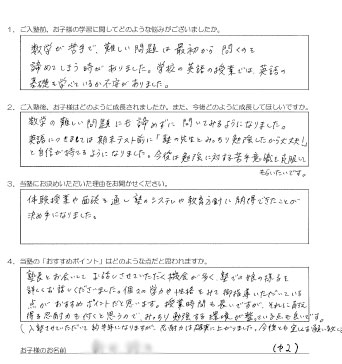 1．ご入塾前、お子様の学習に関してどのような悩みがございましたか。
数学が苦手で、難しい問題は最初から解くのを
諦めてしまう時がありました。学校の英語の授業では、英語の
基礎を学べているか不安がありました。
2．ご入塾後、お子様はどのように成長されましたか。また、今後どのように成長してほしいですか。
数学の難しい問題にも諦めずに解いてみるようになりました。
英語につきましては期末テスト前に「塾の先生とみっちり勉強したから大丈夫」
と自信が持てるようになりました。今後は勉強に対する苦手意識を克服して
もらいたいです。
3．当塾にお決めいただいた理由をお聞かせください。
体験授業や面談を通し塾のシステムや教育方針に納得できたことが
決め手になりました。
4．当塾の「おすすめポイント」はどのような点だと思われますか。
塾長とお会いしてお話しさせていただく機会が多く、塾での娘の様子を
詳しくお話しくださいました。個々の学力や性格をみて御指導いただいている
点がおすすめポイントだと思います。授業時間も長いですが、それに
得る忍耐力も付くと思うので、みっちり勉強する環境が整っていると思います。
（入塾させていただいて約半年になりますが、忍耐力は確実に上がりました。今後も宜しくお願い致し
お子様のお名前 （中2）